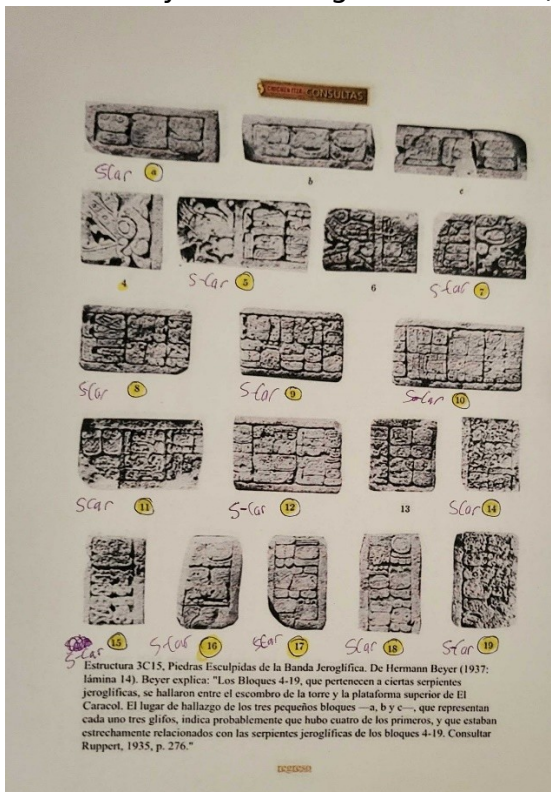 CONSULTAS
S-Car a
b
c
4
S-Car 5
6
S-Car 7
S-Car 8
S-Car 9
S-Car 10
S-Car 11
S-Car 12
13
S-Car 14
S-Car 15
S-Car 16
S-Car 17
S-Car 18
S-Car 19
Estructura 3C15, Piedras Esculpidas de la Banda Jeroglífica. De Hermann Beyer (1937:
lámina 14). Beyer explica: "Los Bloques 4-19, que pertenecen a ciertas serpientes
jeroglíficas, se hallaron entre el escombro de la torre y la plataforma superior de El
Caracol. El lugar de hallazgo de los tres pequeños bloques —a, b y c—, que representan
cada uno tres glifos, indica probablemente que hubo cuatro de los primeros, y que estaban
estrechamente relacionados con las serpientes jeroglíficas de los bloques 4-19. Consultar
Ruppert, 1935, p. 276."